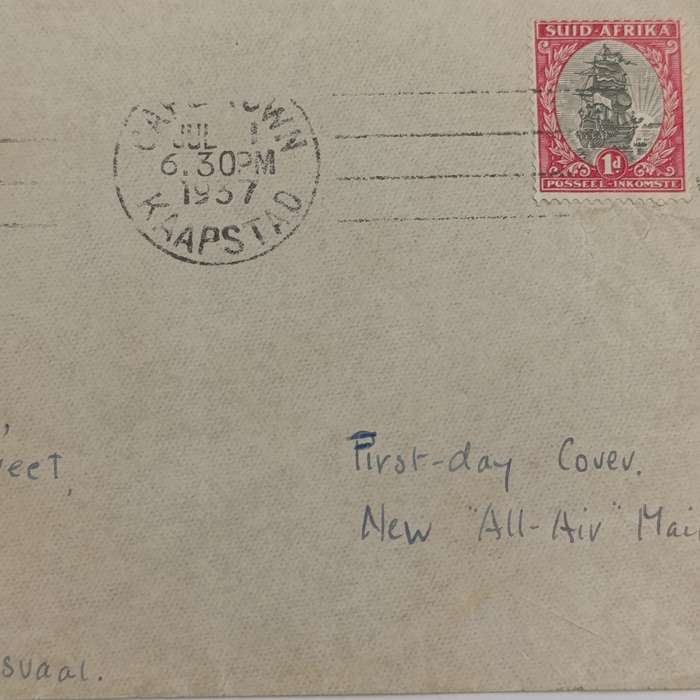 SUID-AFRIKA
1d
POSSEEL-INKOMSTE
CAPE TOWN
JUL 1
6.30PM
1937
KAAPSTAD
First-day Cover.
New "All-Air" Mai
reet,
svaal.